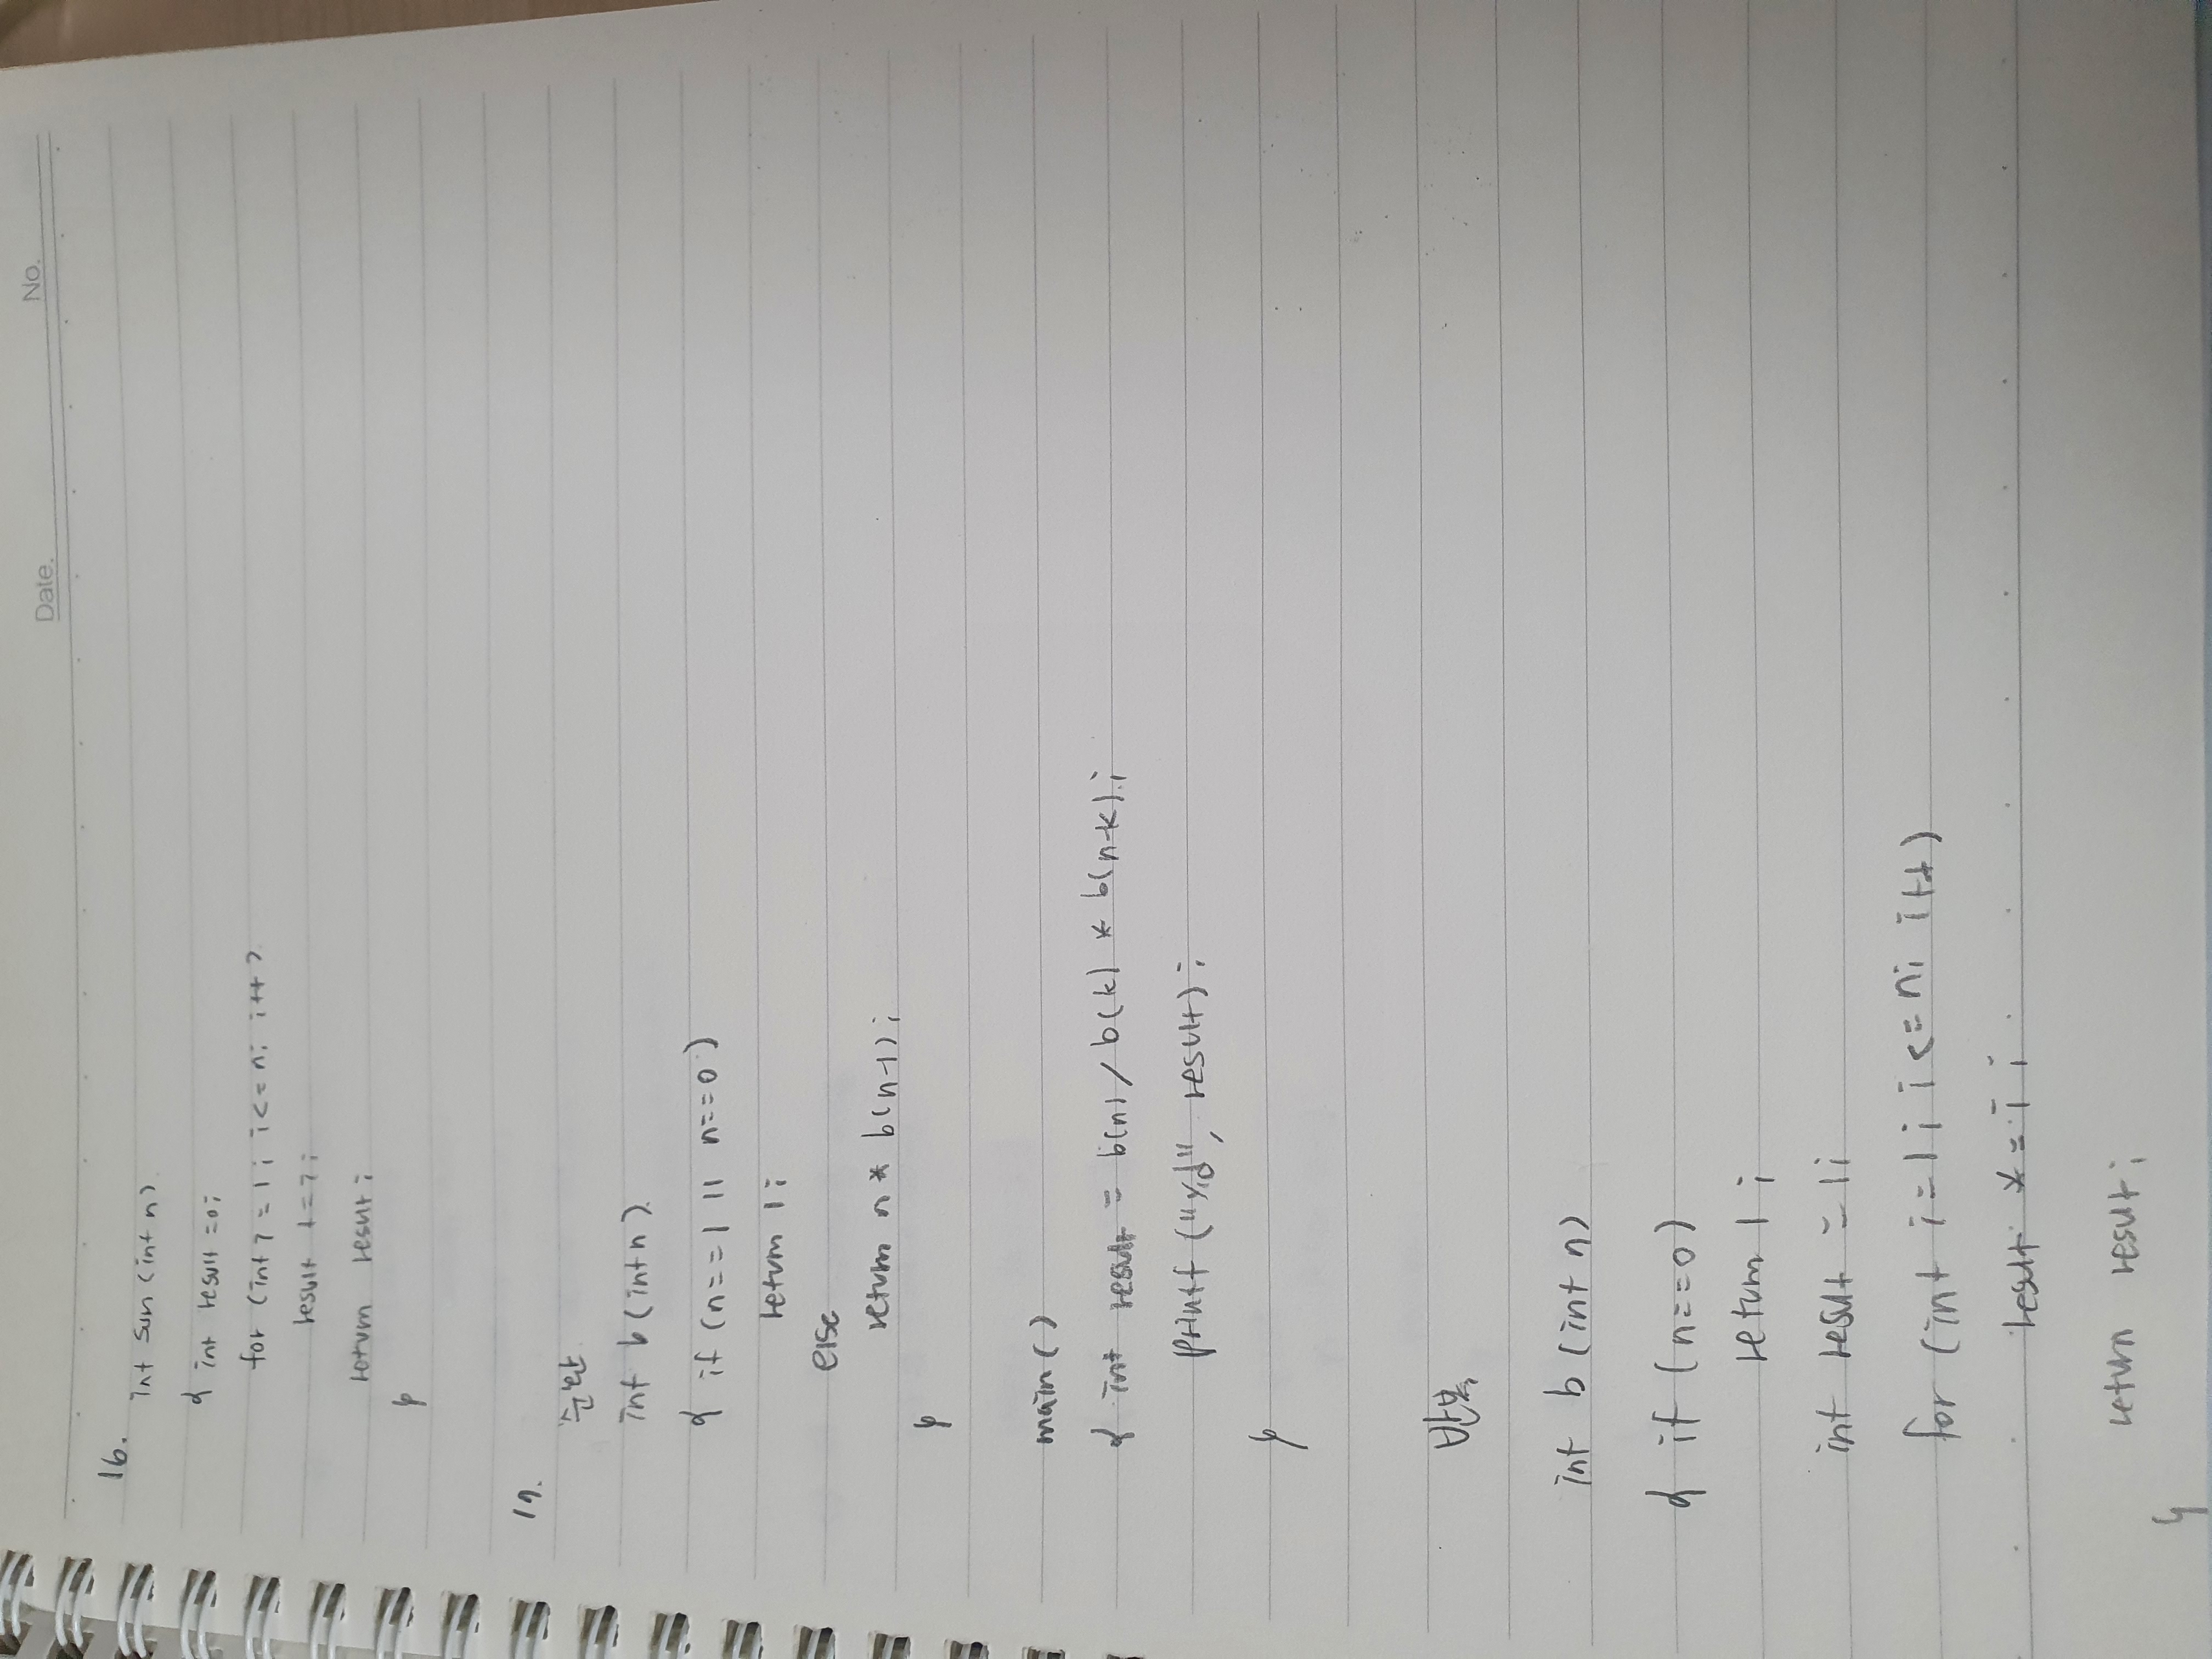 Date. No.
16.
int sum (int n)
{ int result =0;
for (int i = 1; i<= n; i++)
result += i;
return result;
}
17.
순환
int b(int n)
{ if (n==1 || n==0)
return 1;
else
return n * b(n-1);
}
main ( )
{ int result = b(n) / b(k) * b(n-k);
printf ("%d", result);
}
반복
int b (int n)
{ if (n==0)
return 1 ;
int result = 1;
for (int i=1; i<=n; i++)
result *= i ;
return result;
}